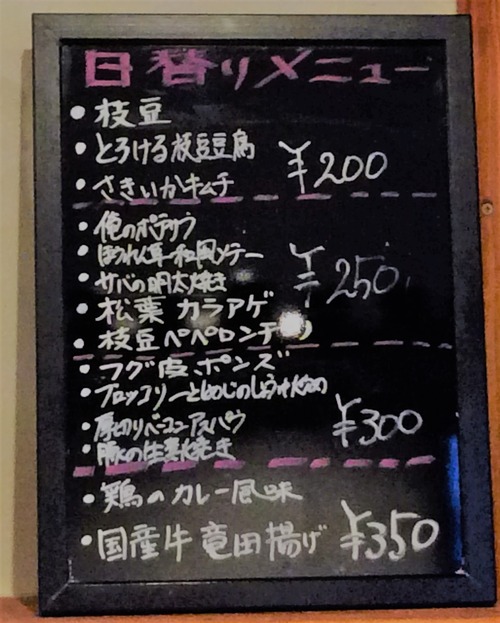 日替りメニュー
・枝豆
・とろける枝豆豆腐
・さきいかキムチ
¥200
・俺のポテサラ
・ほうれん草和風ソテー
・サバの明太焼き
・松葉カラアゲ
・枝豆ペペロンチーノ
¥250
・フグ皮ポンズ
・ブロッコリーとしめじのしょうゆ炒め
・厚切りベーコンアスパラ
・豚の生姜焼き
¥300
・鶏のカレー風味
・国産牛竜田揚げ
¥350